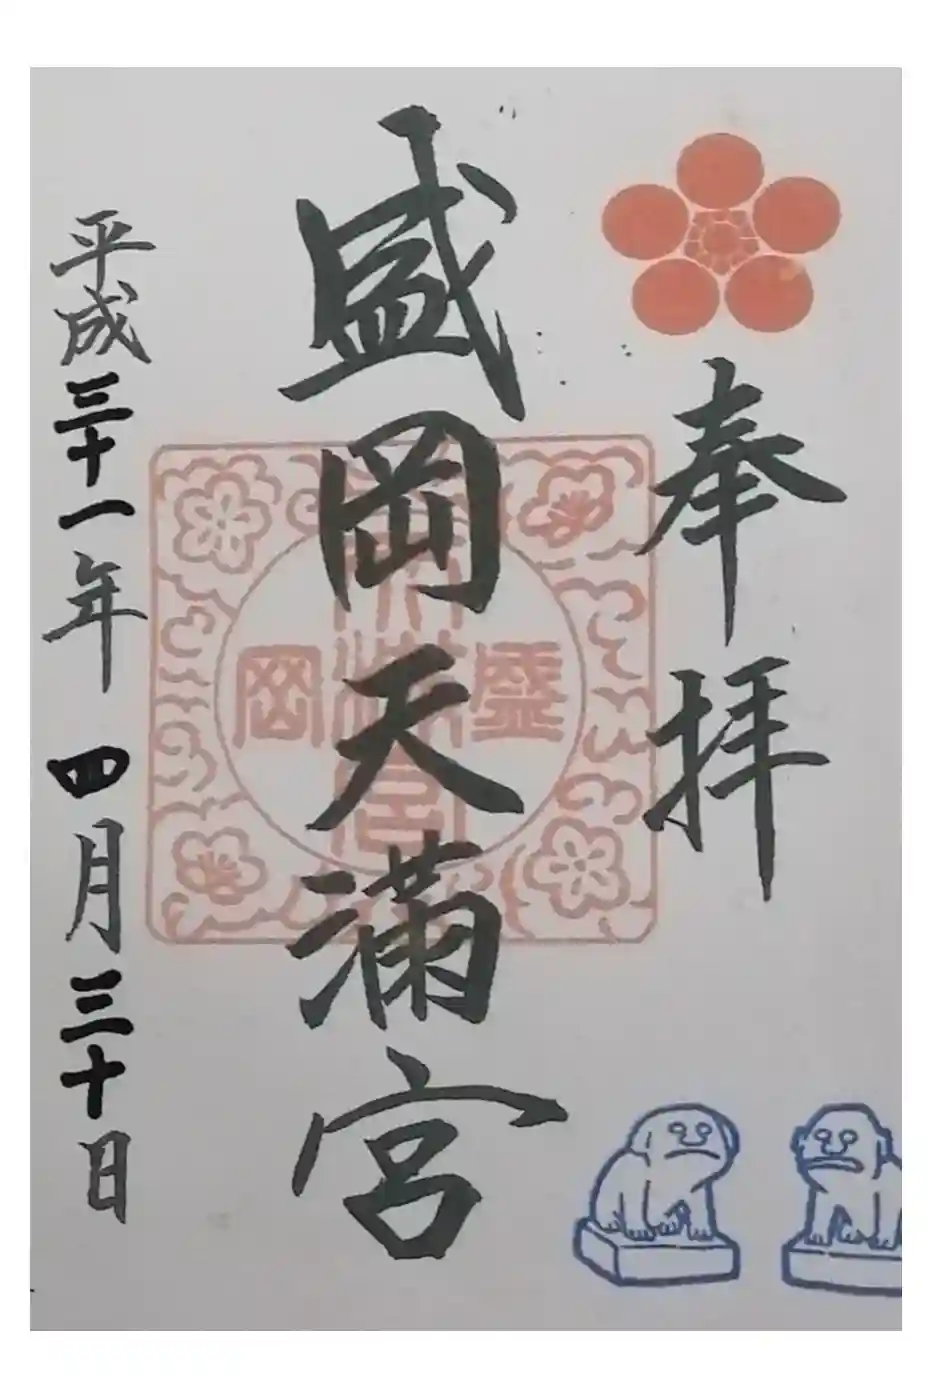 奉拝
盛岡天満宮
盛岡天満宮
平成三十一年四月三十日